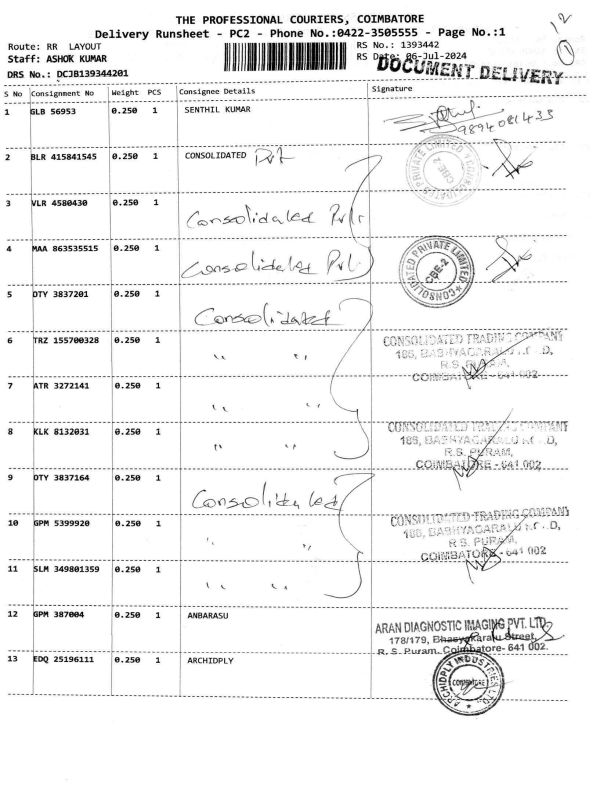 THE PROFESSIONAL COURIERS, COIMBATORE
Delivery Runsheet - PC2 - Phone No.:0422-3505555 - Page No.:1
12
1
Route: RR LAYOUT
RS No.: 1393442
Staff: ASHOK KUMAR
RS Date: 06-Jul-2024
DOCUMENT DELIVERY
DRS No.: DCJB139344201
S No Consignment No Weight PCS Consignee Details Signature
1 GLB 56953 0.250 1 SENTHIL KUMAR
9894081433
2 BLR 415841545 0.250 1 CONSOLIDATED Pvt
CONSOLIDATED PRIVATE LIMITED
CBE-2
3 VLR 4580430 0.250 1
Consolidated
4 MAA 863535515 0.250 1
Consolidated Pvt.
CONSOLIDATED PRIVATE LIMITED
CBE-2
5 OTY 3837201 0.250 1
Consolidated
6 TRZ 155700328 0.250 1 " "
CONSOLIDATED TRADING COMPANY
R.S. PURAM,
COIMBATORE - 641 002
7 ATR 3272141 0.250 1
" "
8 KLK 8132031 0.250 1
" "
CONSOLIDATED TRADING COMPANY
R.S. PURAM,
COIMBATORE - 641 002
9 OTY 3837164 0.250 1
Consolidated
10 GPM 5399920 0.250 1
" "
CONSOLIDATED TRADING COMPANY
R.S. PURAM,
COIMBATORE - 641 002
11 SLM 349801359 0.250 1
" "
12 GPM 387004 0.250 1 ANBARASU
ARAN DIAGNOSTIC IMAGING PVT. LTD.
178/179, Bhasyakaralu Street,
R. S. Puram, Coimbatore- 641 002.
13 EDQ 25196111 0.250 1 ARCHIDPLY
ARCHIDPLY INDUSTRIES LTD.
COIMBATORE